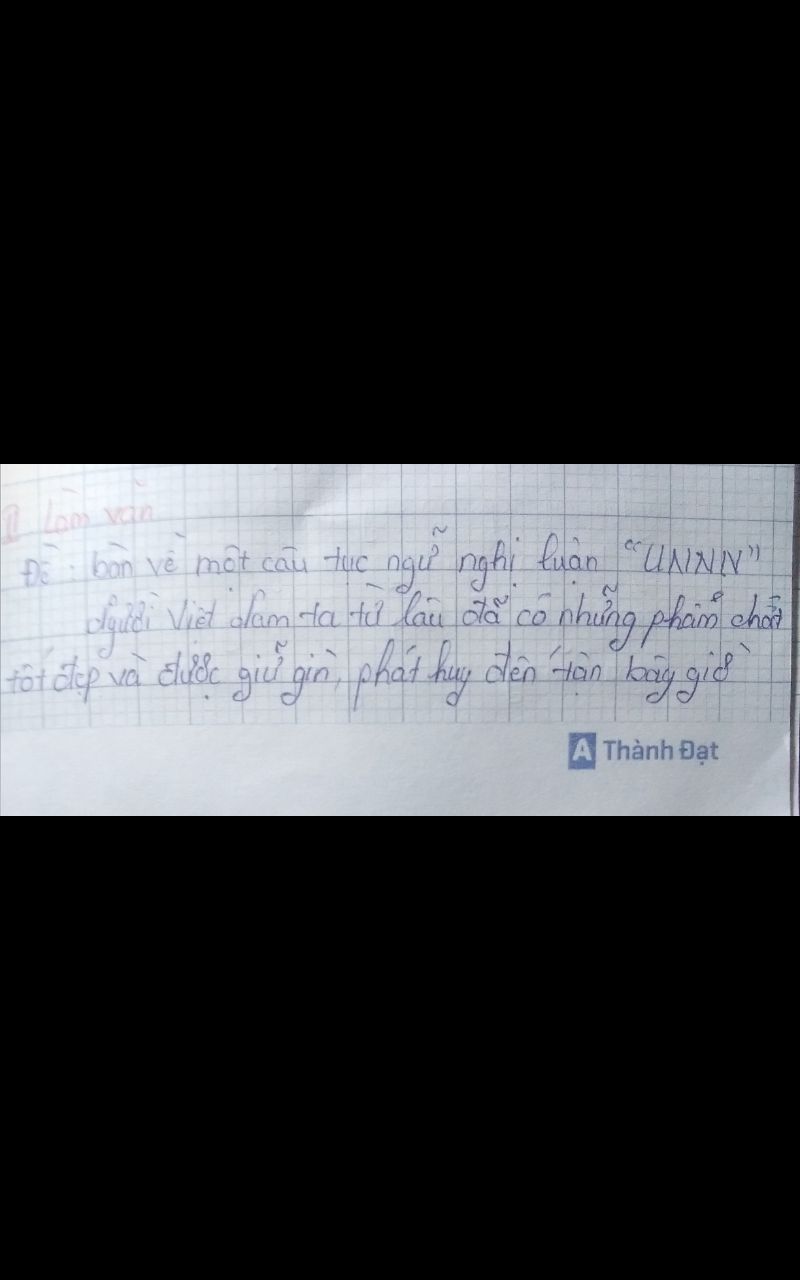 II Làm văn
Đề: bàn về một câu tục ngữ nghị luận "UNNN"
Người Việt Nam ta từ lâu đã có những phẩm chất
tốt đẹp và được giữ gìn, phát huy đến tận bây giờ
A Thành Đạt